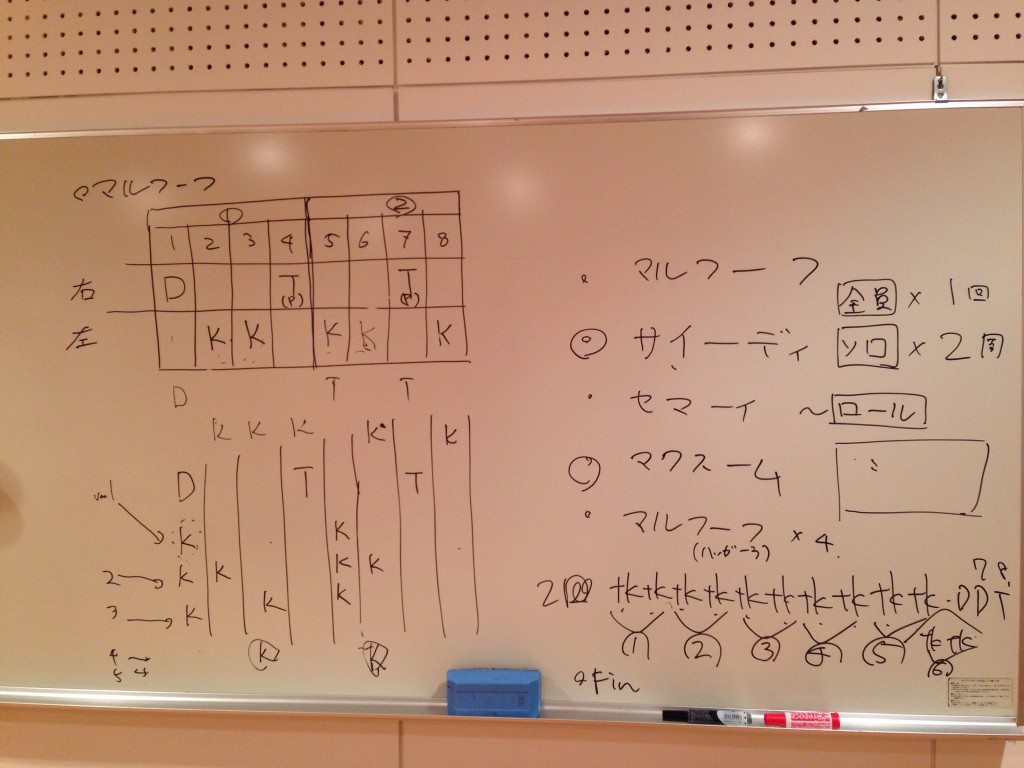 マルフーフ
① ②
1 2 3 4 5 6 7 8
右 D T T
(P) (P)
左 K K K K K
D T T
K K K K K
D T T
K K
2 K K K K
3 K K K
K K
4
5
マルフーフ 全員 × 1回
◎ サイーディ ソロ × 2回
・ セマーイ ~ロール
○ マクスーム
・ マルフーフ × 4
2回 tk tk tk tk tk tk tk tk tk tk DDT
(1) (2) (3) (4) (5) tk tk
(6)
Fin